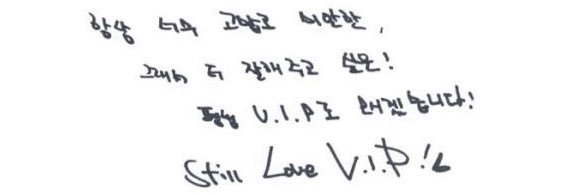 항상 너무 고맙고 미안한,
그래서 더 잘해주고 싶은!
평생 V.I.P로 모시겠습니다!
Still Love V.I.P!